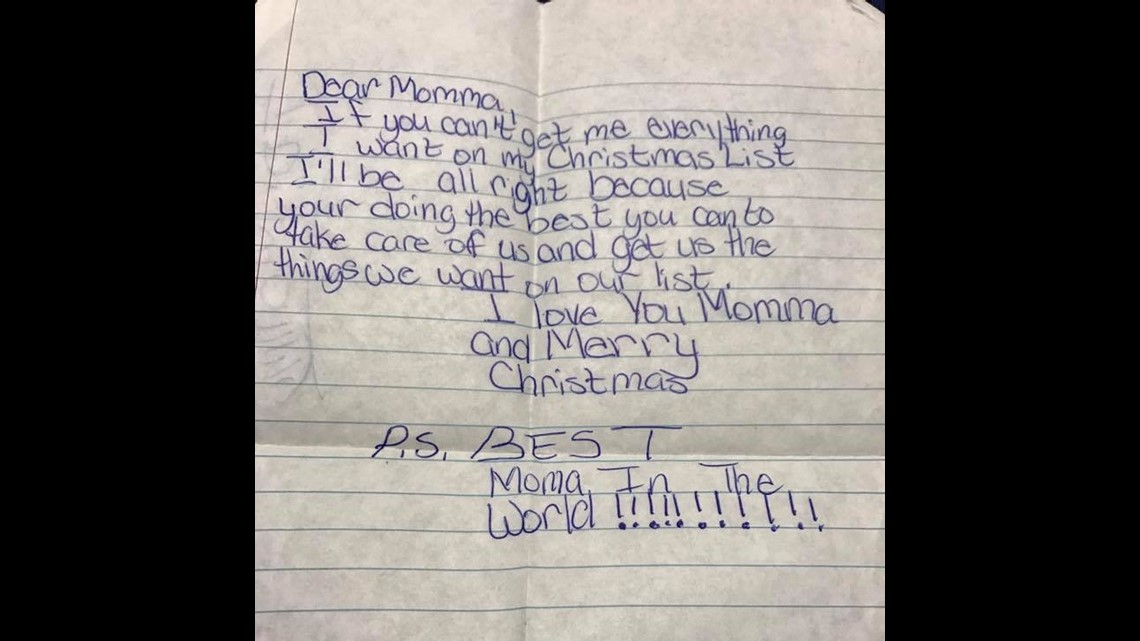 Dear Momma,
If you can't get me everything
I want on my Christmas List
I'll be all right because
your doing the best you can to
take care of us and get us the
things we want on our list.
I love You Momma
and Merry
Christmas
P.S. BEST
Moma In The
World !!!!!!!!!!!